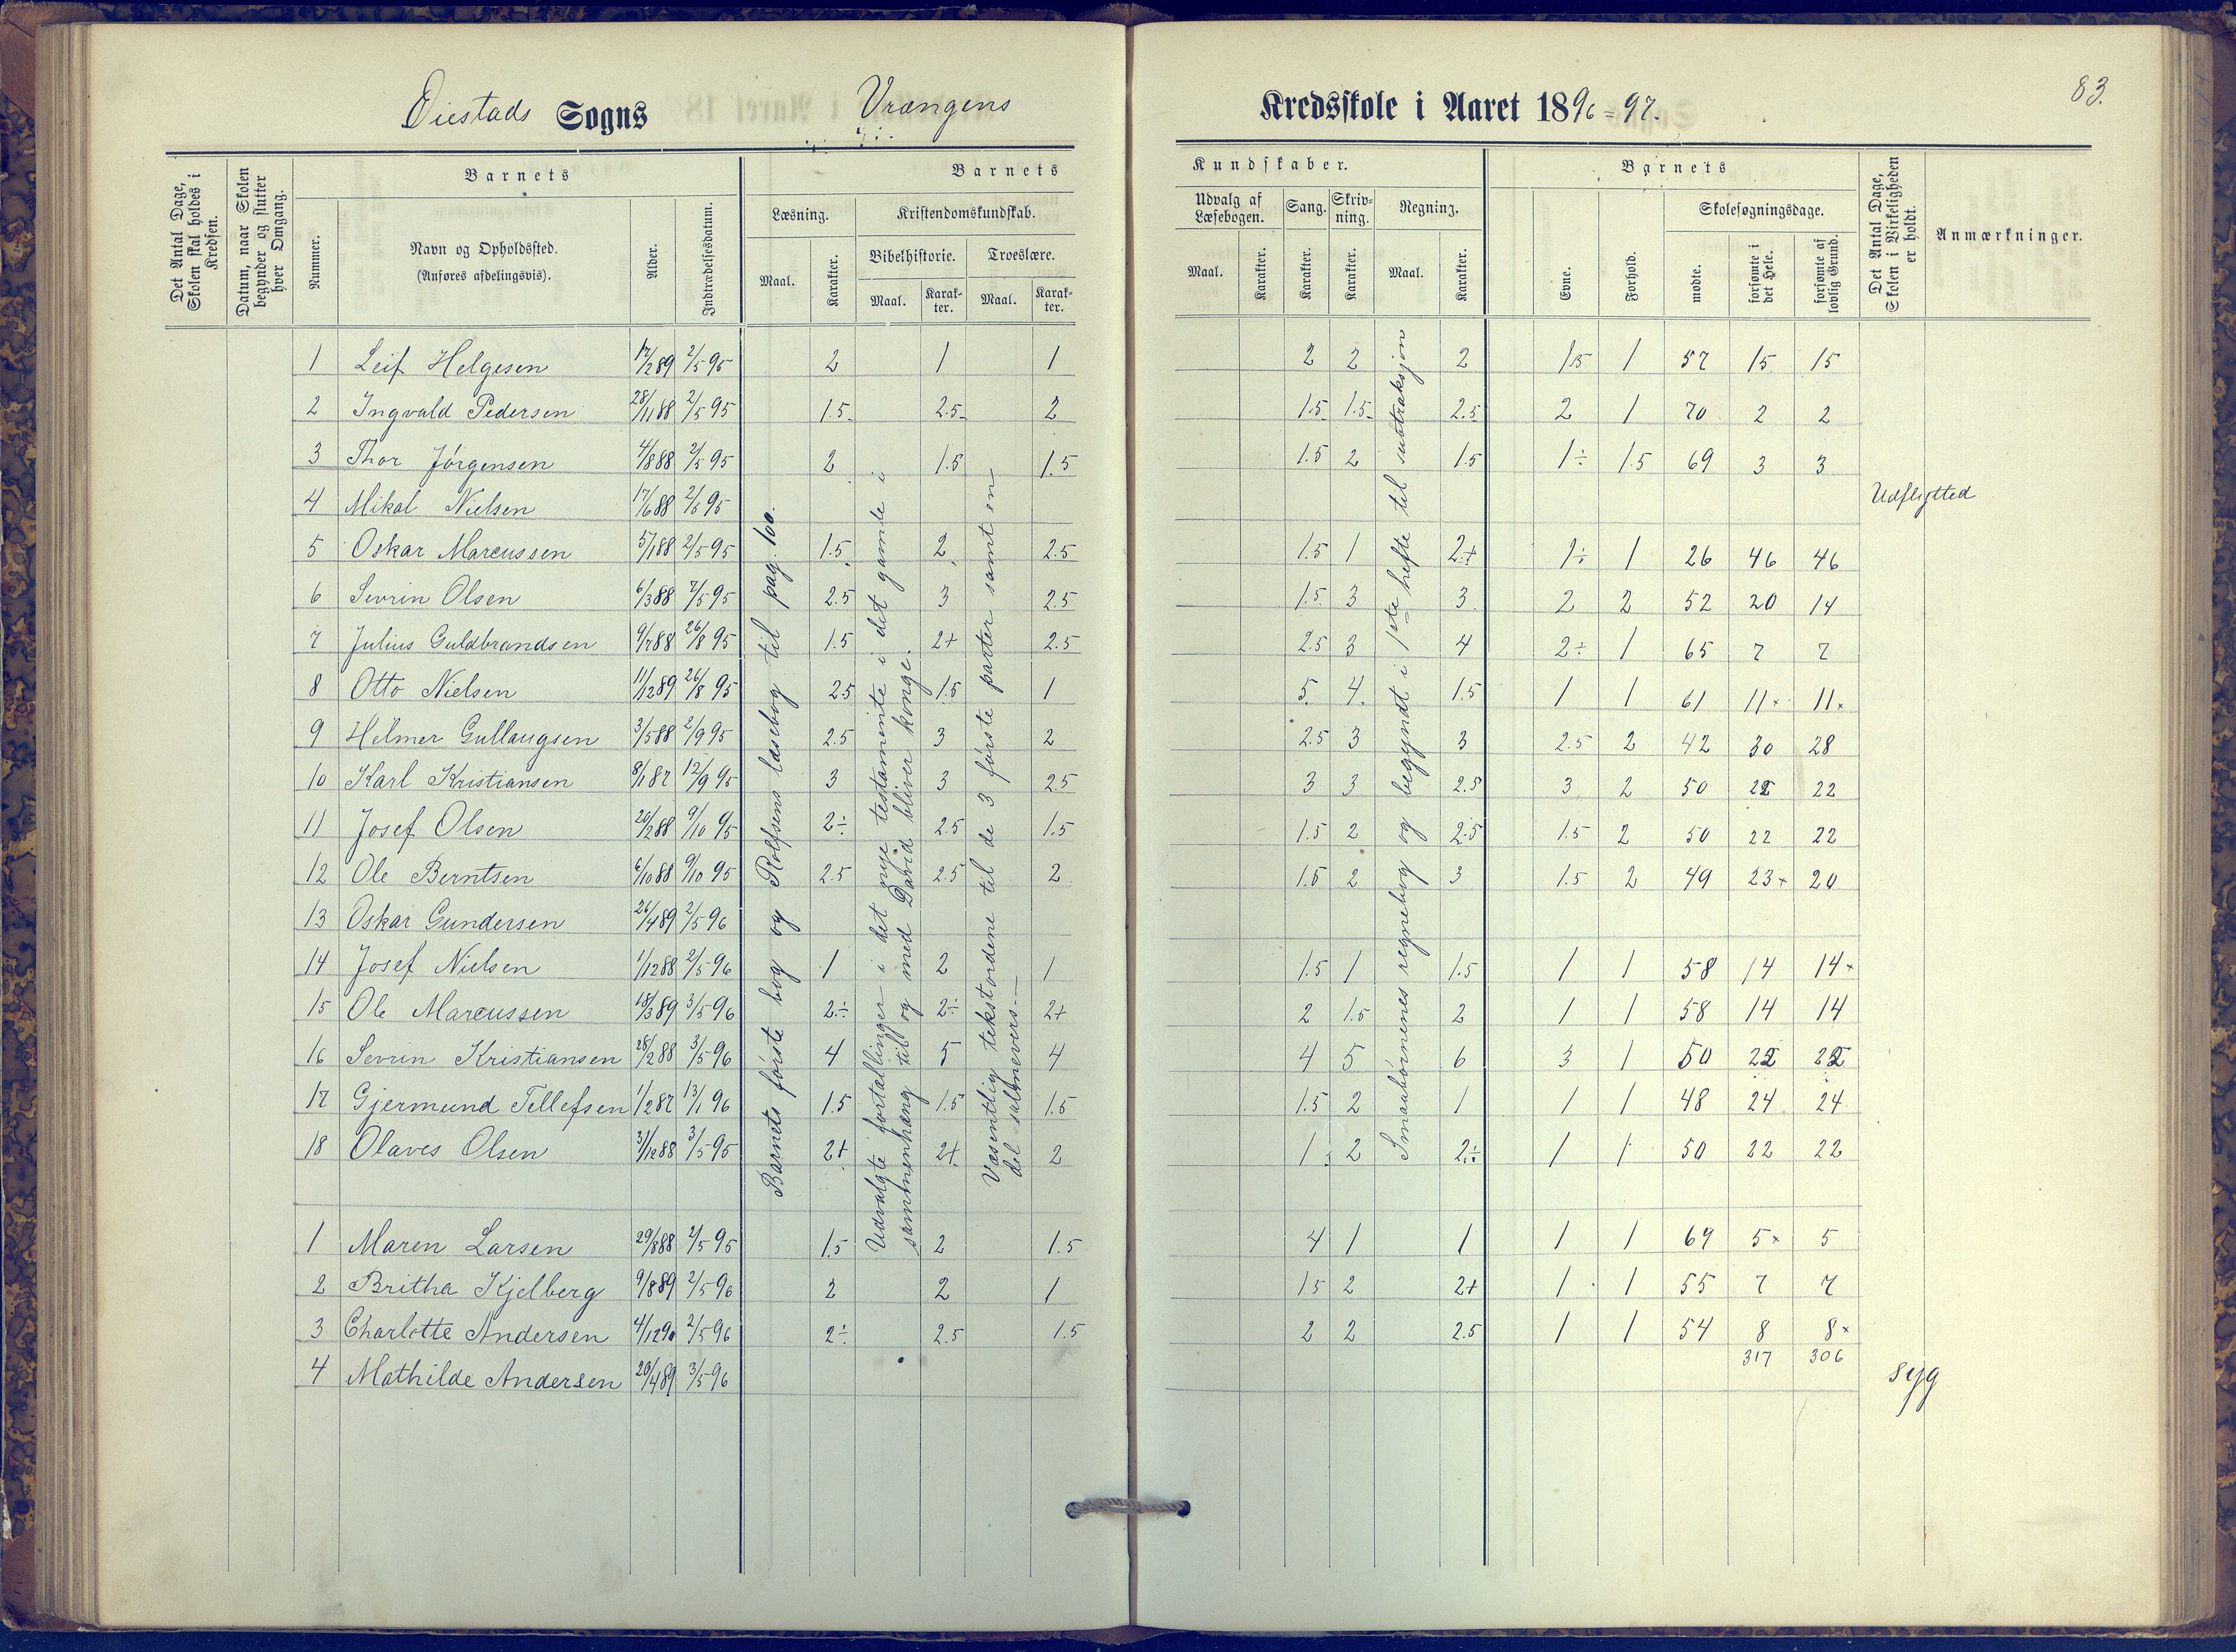 83.
Øiestads Sogns Vrængens Kredsskole i Aaret 1896=97.
Det Antal Dage, Skolen skal holdes i Kredsen.
Datum, naar Skolen begynder og slutter hver Omgang.
Barnets
Nummer.
Navn og Opholdssted.
(Anføres afdelingsvis).
Alder.
Indtrædelsesdatum.
Barnets Kundskaber.
Læsning.
Maal.
Karakter.
Kristendomskundskab.
Bibelhistorie.
Maal.
Karakter.
Troeslære.
Maal.
Karakter.
Udvalg af Læsebogen.
Maal.
Karakter.
Sang.
Karakter.
Skrivning.
Karakter.
Regning.
Maal.
Karakter.
Barnets
Evne.
Forhold.
Skolesøgningsdage.
mødte.
forsømte i det Hele.
forsømte af lovlig Grund.
Det Antal Dage, Skolen i Virkeligheden er holdt.
Anmærkninger.
1 Leif Helgesen 17/289 2/5 95 2 1 1 2 2 2 1.5 1 57 15 15
2 Ingvald Pedersen 28/1188 2/5 95 1.5 2.5 2 1.5 1.5 2.5 2 1 70 2 2
3 Thor Jörgensen 4/888 2/5 95 2 1.5 1.5 1.5 2 1.5 1÷ 1.5 69 3 3
4 Mikal Nielsen 17/688 2/5 95 Udflytted
5 Oskar Marcussen 5/188 2/5 95 1.5 2 2.5 1.5 1 2+ 1÷ 1 26 46 46
6 Sevrin Olsen 6/388 7/5 95 2.5 3 2.5 1.5 3 3 2 2 52 20 14
7 Julius Guldbrandsen 9/788 26/8 95 1.5 2+ 2.5 2.5 3 4 2÷ 1 65 7 7
8 Otto Nielsen 11/1289 26/8 95 2.5 1.5 1 5 4 1.5 1 1 61 11+ 11+
9 Helmer Gullaugsen 3/588 2/9 95 2.5 3 2 2.5 3 3 2.5 2 42 30 28
10 Karl Kristiansen 8/187 12/9 95 3 3 2.5 3 3 2.5 3 2 50 22 22
11 Josef Olsen 20/288 9/10 95 2÷ 2.5 1.5 1.5 2 2.5 1.5 2 50 22 22
12 Ole Berntsen 6/1088 9/10 95 2.5 2.5 2 1.5 2 3 1.5 2 49 23+ 20
13 Oskar Gundersen 26/489 2/5 96
14 Josef Nielsen 1/1288 2/5 96 1 2 1 1.5 1 1.5 1 1 58 14 14+
15 Ole Marcussen 18/389 3/5 96 2÷ 2÷ 2+ 2 1.5 2 1 1 58 14 14
16 Sevrin Kristiansen 28/288 3/5 96 4 5 4 4 5 6 3 1 50 22 22
17 Gjermund Tellefsen 1/287 13/1 96 1.5 1.5 1.5 1.5 2 1 1 1 48 24 24
18 Olaves Olsen 31/1288 3/5 95 2+ 2+ 2 1 2 2÷ 1 1 50 22 22
1 Maren Larsen 29/888 2/5 95 1.5 2 1.5 4 1 1 1 1 69 5+ 5
2 Britha Kjelberg 9/889 2/5 96 2 2 1 1.5 2 2+ 1 1 55 7 7
3 Charlotte Andersen 4/1290 2/5 96 2÷ 2.5 1.5 2 2 2.5 1 1 54 8 8+
317 306
4 Mathilde Andersen 20/489 3/5 96 syg
Barnets første bog og Rolfsens læsebog til pag. 100.
Udvalgte fortællinger i det nye testamente i det gamle i
sammenhæng til og med David bliver konge.
Væsentlig tekstordene til de 3 første parter samt en
del salmevers.—
Smaabørnenes regnebog og begyndt i 1ste hefte til subtraksjon